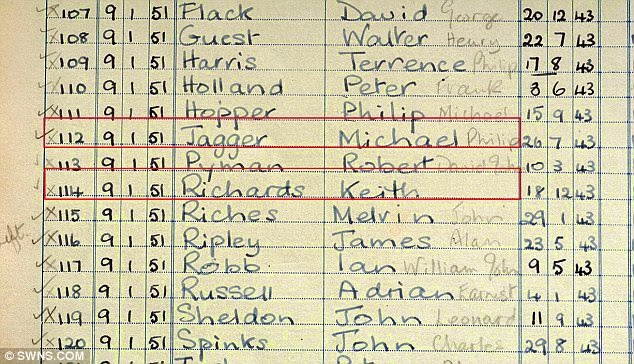 107 9 1 51 Flack David George 20 12 43
108 9 1 51 Guest Walter Henry 22 7 43
109 9 1 51 Harris Terrence Philip 17 8 43
110 9 1 51 Holland Peter Frank 3 6 43
111 9 1 51 Hopper Philip Michael 15 9 43
112 9 1 51 Jagger Michael Philip 26 7 43
113 9 1 51 Pyman Robert David John 10 3 43
114 9 1 51 Richards Keith 18 12 43
115 9 1 51 Riches Melvin John 29 1 43
left
116 9 1 51 Ripley James Alan 23 5 43
117 9 1 51 Robb Ian William John 9 5 43
118 9 1 51 Russell Adrian Earnst 4 1 43
119 9 1 51 Sheldon John Leonard 11 9 43
120 9 1 51 Spinks John Charles 29 8 43
© SWNS.com